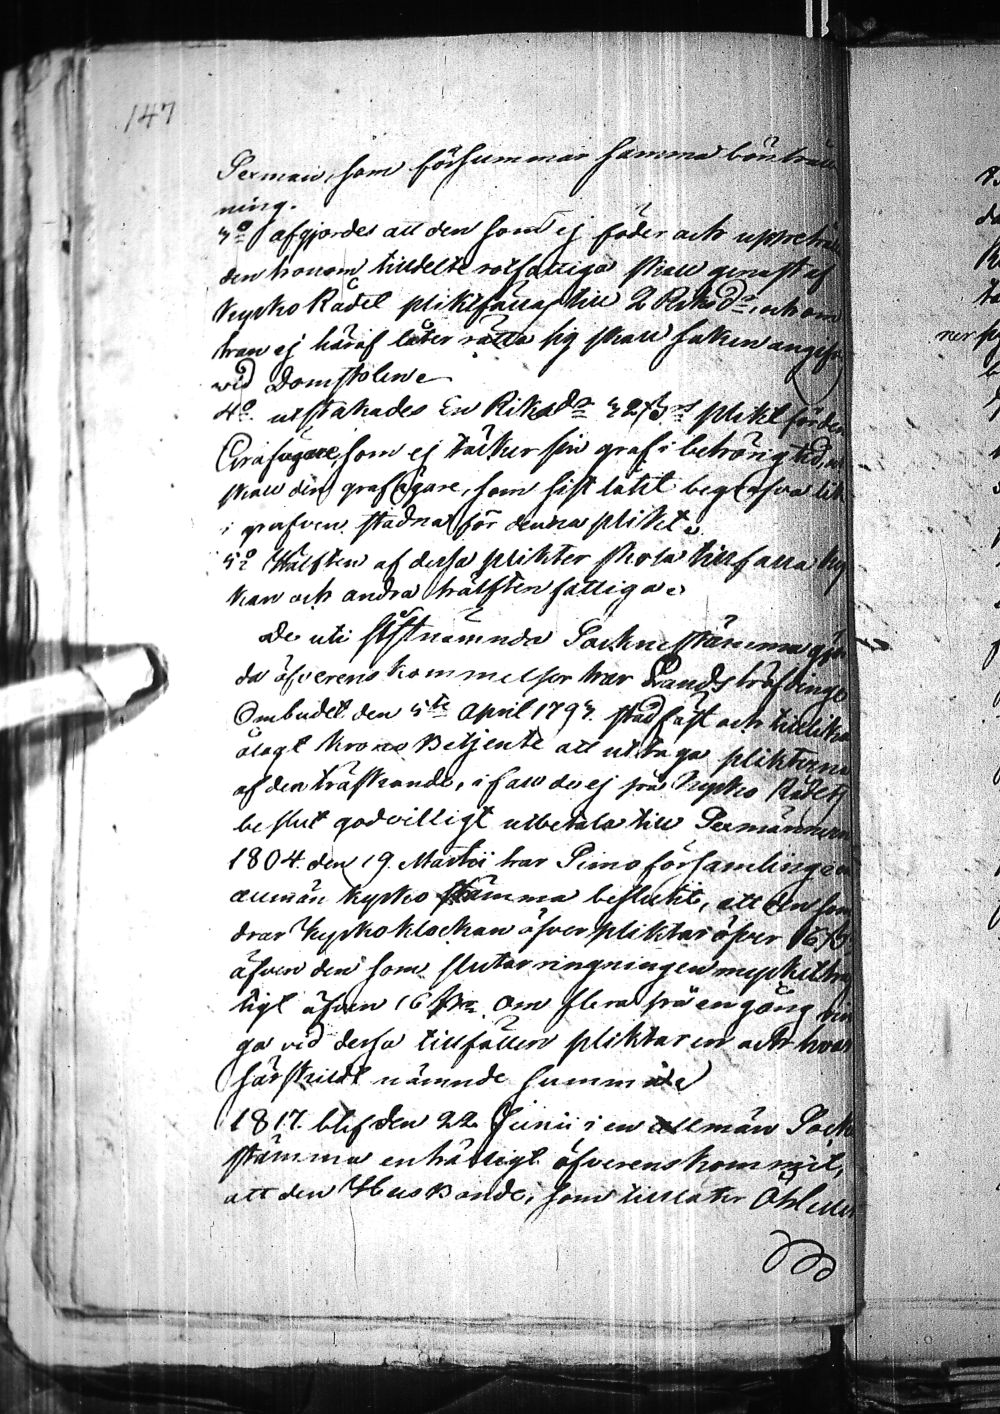 147
Sexman, som försummar samma bönträu
ning.
3o afgjordes att den som ej föder och uppehål
den honom tilldelte rotfattiga skall genast af
kyrko Rådet pliktfällas till 2 Riksdr, och om
han ej häraf låter rätta sig skall saken angifv
vid Domstolen
4o utstakades En Riksdr 32 plikt för den
Grafägare, som ej täcker sin graf i behörig tid,
skall den grafägare, som sist låtit begrafva lik
i grafven stadna för denna plikt.
5o Hälften af dessa plikter skola tillfalla ky
kan och andra hälften fattiga.
De uti sistnämnda Socknestämma gjor
da öfverenskommelser har Landshöfdinge
Ombudet den 5te April 1793 stadfäst och tillika
ålagt Krono Betjente att uttaga plikterna
af den tredskande, i fall de ej på Kyrko Rådets
beslut godvilligt utbetala till Sexmännen
1804 den 19 Martii har Pimo församlingen
allmän kyrko stämma beslutit, att den som
drar kyrkoklockan öfver pliktar öfver 16
äfven den som slutar ringningen mycket ha
tigt äfven 16 Om flera på en gång rin
ga vid dessa tillfällen pliktar en och hvar
särskildt nämnde summa
1817 blef den 22 Junii i en allmän Sock
stämma enhälligt öfverenskommit,
att den Husbonde, som tillåter Öhl eller